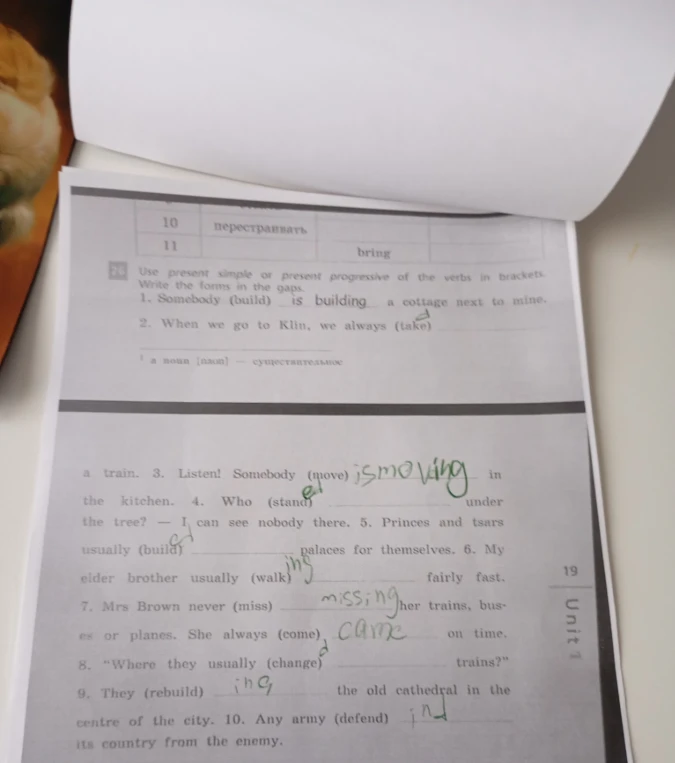 10 перестраивать
11 bring
24 Use present simple or present progressive of the verbs in brackets.
Write the forms in the gaps.
1. Somebody (build) is building a cottage next to mine.
d
2. When we go to Klin, we always (take)
1 a noun [naʊn] — существительное
a train. 3. Listen! Somebody (move) ismoving in
the kitchen. 4. Who (stand) ed under
the tree? — I can see nobody there. 5. Princes and tsars
usually (build) ed palaces for themselves. 6. My
elder brother usually (walk) ing fairly fast.
7. Mrs Brown never (miss) missing her trains, bus-
es or planes. She always (come) came on time.
8. "Where they usually (change) d trains?"
9. They (rebuild) ing the old cathedral in the
centre of the city. 10. Any army (defend) ind
its country from the enemy.
19
Unit 1